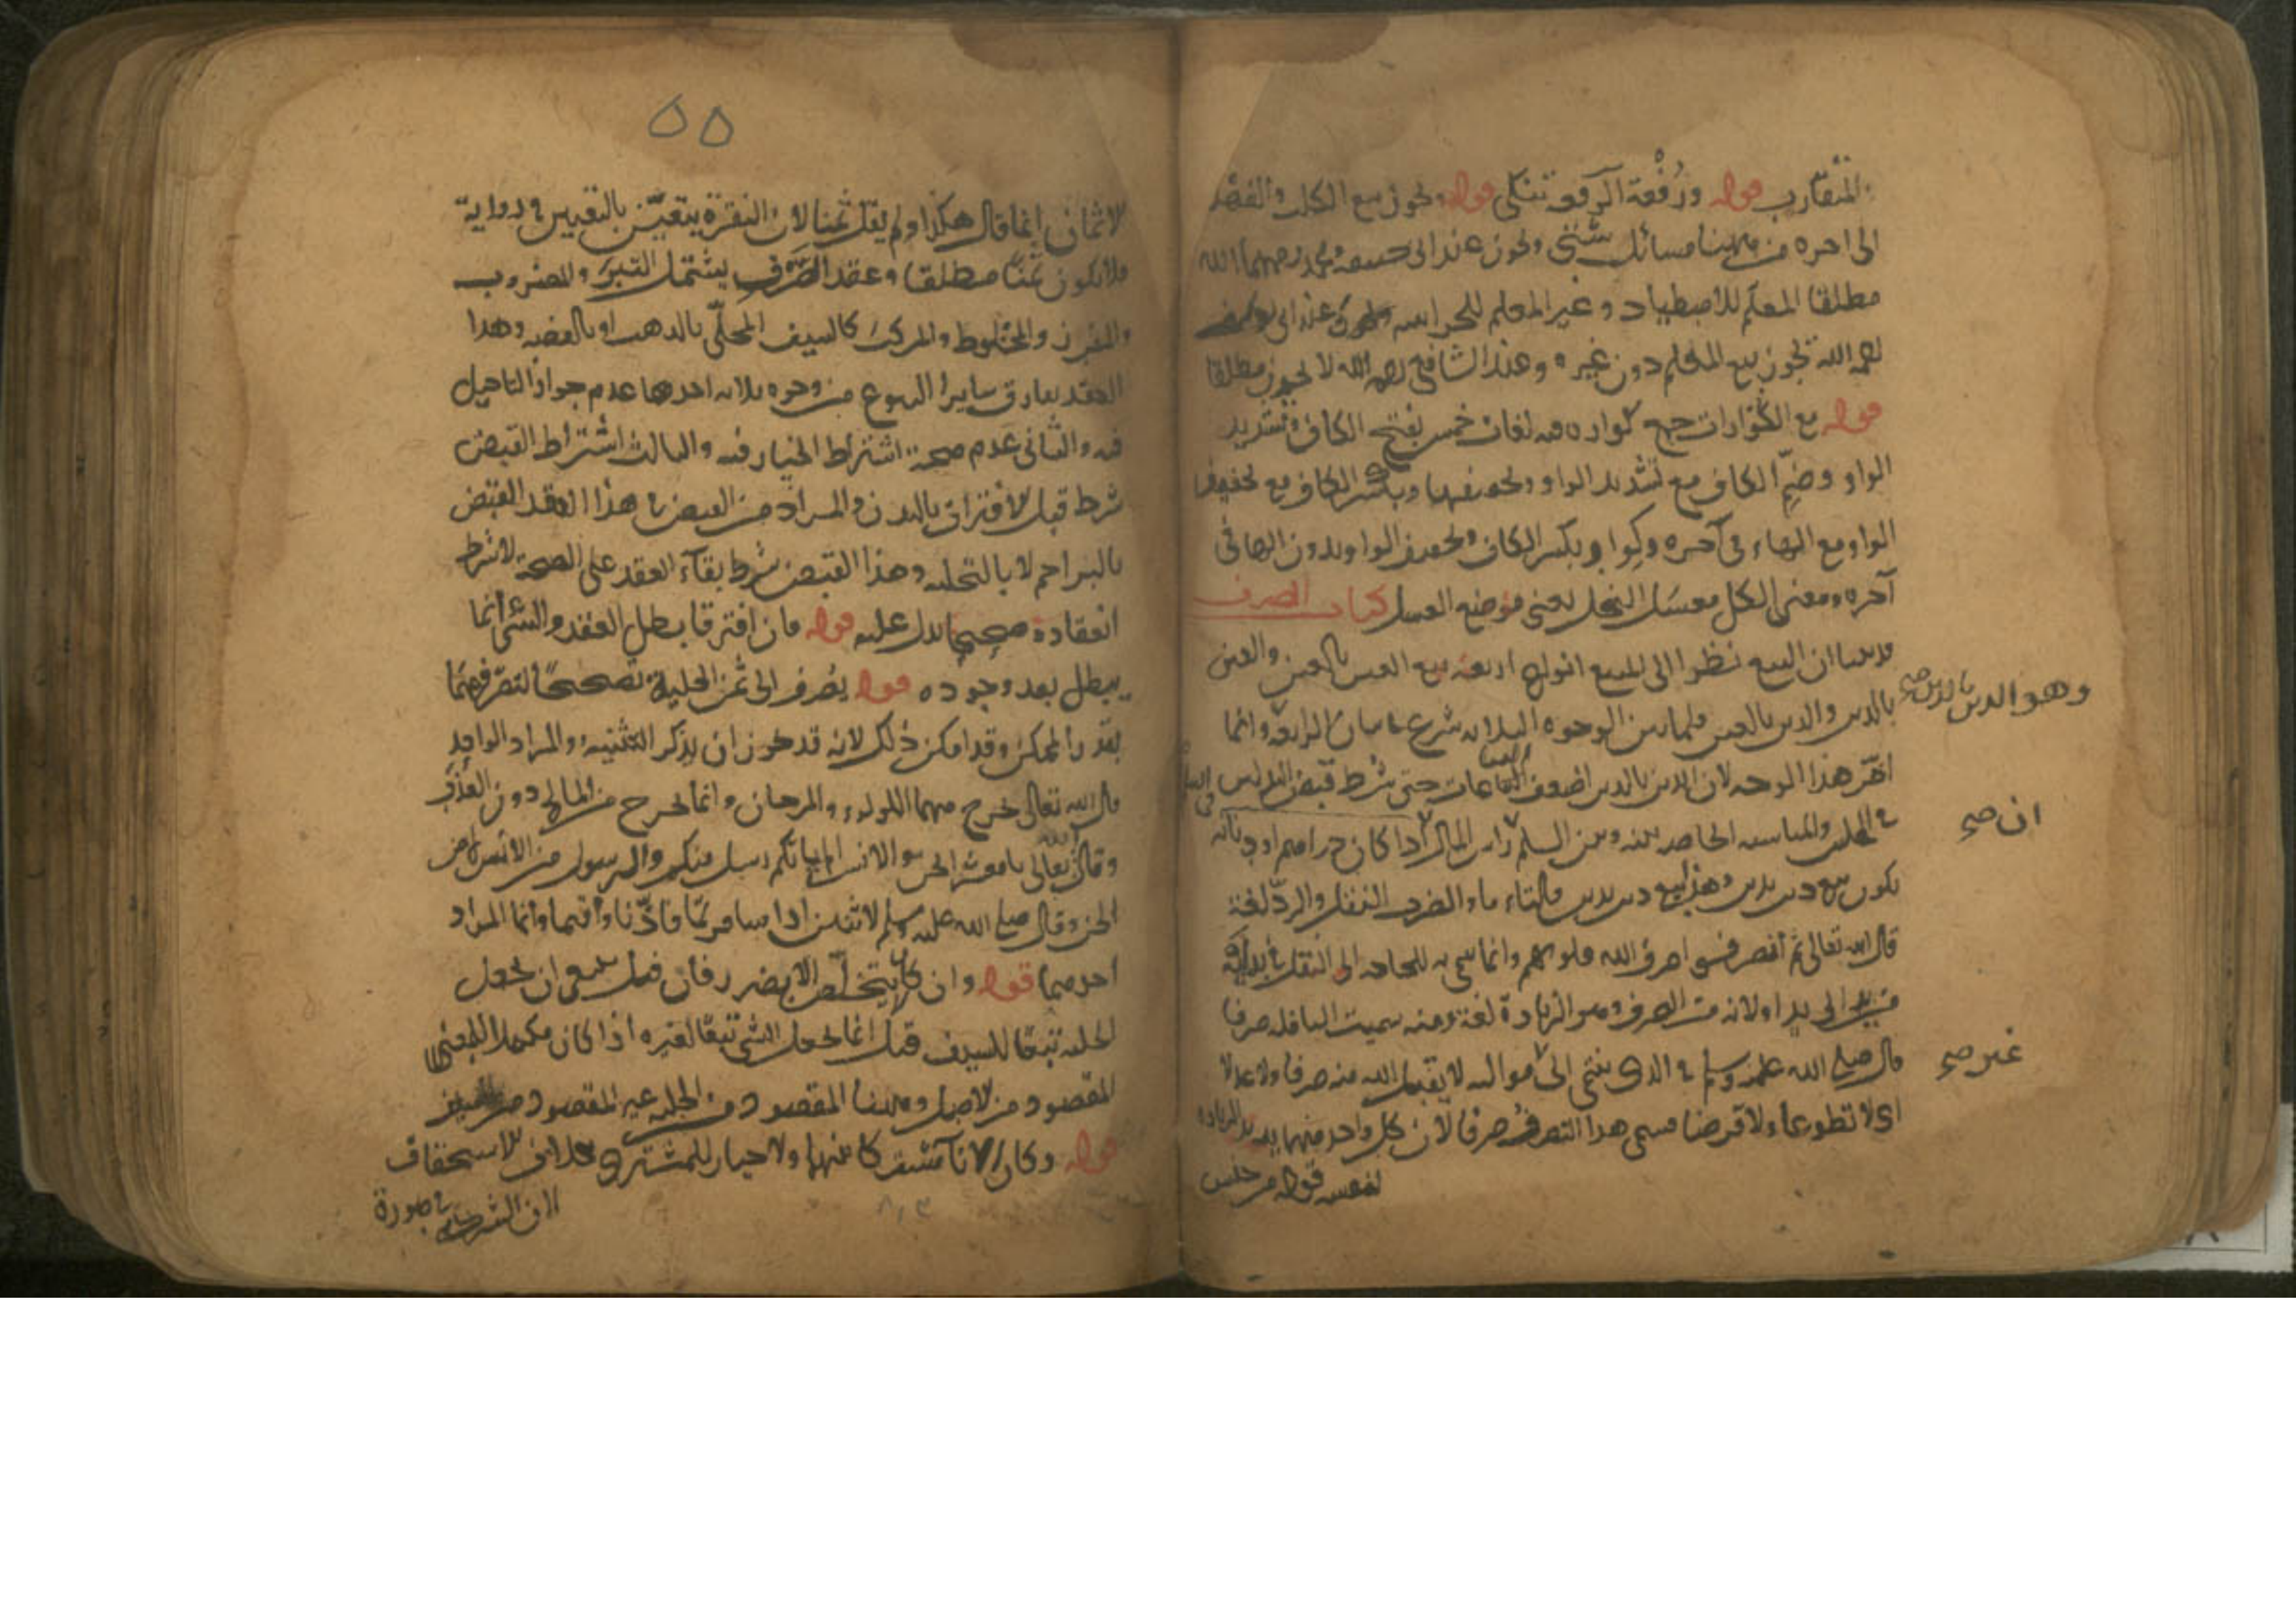 المتقارب قوله ورقعة الرقعة تنكي قوله ويجوز بيع الكلب والفهد
الى اخره من ههنا مسائل شتى ويجوز عند ابي حنيفة ومحمد رحمهما الله
مطلقا المعلم للاصطياد وغير المعلم للحراسة وعند ابي يوسف
رحمه الله يجوز بيع المعلم دون غيره وعند الشافعي رحمه الله لا يجوز مطلقا
قوله مع الكوارات جمع كواره فيه لغات خمس بفتح الكاف وتشديد
الواو وضم الكاف مع تشديد الواو وتخفيفها وبكسر الكاف مع تخفيف
الواو مع الهاء في آخره وكوار بكسر الكاف وتخفيف الواو بدون الهاء في
آخره ومعنى الكل معسل النحل يعني موضع العسل كتاب الصرف
ان البيع نظرا الى المبيع انواع اربعة بيع العين بالعين والعين
بالدين والدين بالعين فلما بين الوجوه الثلاثة شرع في بيان الرابعة وانما
وهو الدين بالدين صح
اخر هذا الوجه لان الدين بالدين اضعف البياعات حتى شرط قبض البدلين
في المجلس والمناسبة الخاصة بينه وبين السلم راس المال اذا كان دراهم او دنانير
ان صح
يكون بيع دين بدين وهذا بيع دين بدين والصرف النقل والرد لغة
قال الله تعالى ثم انصرفوا صرف الله قلوبهم وانما سمي به للحاجة الى النقل في بدليه
من يد الى يد او لانه من الصرف وهو الزيادة لغة ومنه سميت النافلة صرفا
قال صلى الله عليه وسلم في الذي ينتمي الى مواليه لا يقبل الله منه صرفا ولا عدلا
غير صح
اي لا تطوعا ولا فرضا فسمي هذا التصرف صرفا لان كل واحد منهما يريد الزيادة
لنفسه قوله من جنس
٥٥
الاثمان انما قال هكذا ولم يقل ثمنا لان النقرة يتعين بالتعيين في رواية
فلا تكون ثمنا مطلقا وعقد الصرف يشتمل التبر والمضروب
والمفرز والمخلوط والمركب كالسيف المحلى بالذهب او بالفضة وهذا
العقد يفارق سائر البيوع من وجوه ثلاثة احدها عدم جواز التاجيل
فيه والثاني عدم صحة اشتراط الخيار فيه والثالث اشتراط القبض
شرط قبل الافتراق بالبدن والمراد من القبض في هذا العقد القبض
بالبراجم لا بالتخلية وهذا القبض شرط بقاء العقد على الصحة لا شرط
انعقاده صحيحا يدل عليه قوله فان افترقا بطل العقد والشيء انما
يبطل بعد وجوده قوله يصرف الى ثمن الحلية تصحيحا لتصرفهما
بقدر الممكن وقد امكن ذلك لانه قد يجوز ان يذكر التثنية والمراد الواحد
قال الله تعالى يخرج منهما اللؤلؤ والمرجان وانما يخرج من المالح دون العذب
وقال الله تعالى يا معشر الجن والانس الم ياتكم رسل منكم والرسول من الانس لا من
الجن وقال صلى الله عليه وسلم لاثنين اذا سافرتما فاذنا واقيما وانما المراد
احدهما قوله وان كان يتخلص الا بضرر فان قيل ينبغي ان تجعل
الحلية تبعا للسيف قيل انما يجعل الشيء تبعا لغيره اذا كان مكملا للمعنى
المقصود من الاصل وههنا المقصود من الحلية غير المقصود من السيف
قوله وكان الاناء مشتركا بينهما ولا خيار للمشتري بخلاف الاستحقاق
لان الشركة في صورة